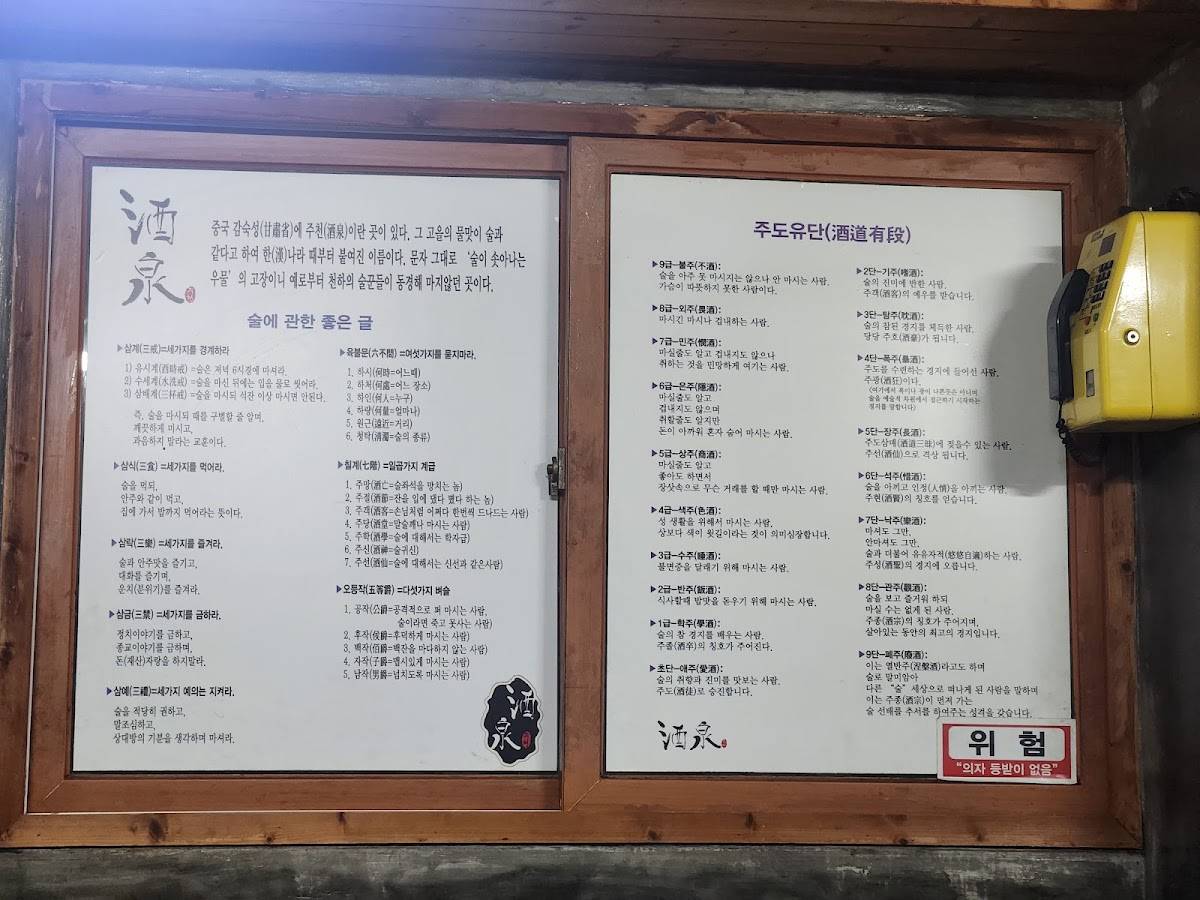 酒泉
중국 감숙성(甘肅省)에 주천(酒泉)이란 곳이 있다. 그 고을의 물맛이 술과
같다고 하여 한(漢)나라 때부터 붙여진 이름이다. 문자 그대로 ‘술이 솟아나는
우물’의 고장이니 예로부터 천하의 술꾼들이 동경해 마지않던 곳이다.
술에 관한 좋은 글
▶삼계(三戒)=세가지를 경계하라
1) 유시계(酉時戒)=술은 저녁 6시경에 마셔라.
2) 수세계(水洗戒)=술을 마신 뒤에는 입을 물로 씻어라.
3) 삼배계(三杯戒)=술을 마시되 석잔 이상 마시면 안된다.
즉, 술을 마시되 때를 구별할 줄 알며,
깨끗하게 미시고,
과음하지 말라는 교훈이다.
▶삼식(三食)=세가지를 먹어라.
술을 먹되,
안주와 같이 먹고,
집에 가서 밥까지 먹어라는 뜻이다.
▶삼락(三樂)=세가지를 즐겨라.
술과 안주맛을 즐기고,
대화를 즐기며,
운치(분위기)를 즐겨라.
▶삼금(三禁)=세가지를 금하라.
정치이야기를 금하고,
종교이야기를 금하며,
돈(재산)자랑을 하지말라.
▶삼예(三禮)=세가지 예의는 지켜라.
술을 적당히 권하고,
말조심하고,
상대방의 기분을 생각하며 마셔라.
▶육불문(六不問)=여섯가지를 묻지마라.
1. 하시(何時=어느때)
2. 하처(何處=어느 장소)
3. 하인(何人=누구)
4. 하량(何量=얼마나)
5. 원근(遠近=거리)
6. 청탁(淸濁=술의 종류)
▶칠계(七階)=일곱가지 계급
1. 주망(酒亡=술좌석을 망치는 놈)
2. 주절(酒節=잔을 입에 댔다 뗐다 하는 놈)
3. 주객(酒客=손님처럼 어쩌다 한번씩 드나드는 사람)
4. 주당(酒堂=말술깨나 마시는 사람)
5. 주학(酒學=술에 대해서는 학자급)
6. 주신(酒神=술귀신)
7. 주선(酒仙=술에 대해서는 신선과 같은사람)
▶오등작(五等爵)=다섯가지 벼슬
1. 공작(公爵=공격적으로 퍼 마시는 사람,
술이라면 죽고 못사는 사람)
2. 후작(侯爵=후덕하게 마시는 사람)
3. 백작(伯爵=백잔을 마다하지 않는 사람)
4. 자작(子爵=맵시있게 마시는 사람)
5. 남작(男爵=넘치도록 마시는 사람)
酒泉
주도유단(酒道有段)
▶9급-불주(不酒):
술을 아주 못 마시지는 않으나 안 마시는 사람.
가슴이 따뜻하지 못한 사람이다.
▶8급-외주(畏酒):
마시긴 마시나 겁내하는 사람.
▶7급-민주(憫酒):
마실줄도 알고 겁내지도 않으나
취하는 것을 민망하게 여기는 사람.
▶6급-은주(隱酒):
마실줄도 알고
겁내지도 않으며
취할줄도 알지만
돈이 아까워 혼자 숨어 마시는 사람.
▶5급-상주(商酒):
마실줄도 알고
좋아도 하면서
장삿속으로 무슨 거래를 할 때만 마시는 사람.
▶4급-색주(色酒):
성 생활을 위해서 마시는 사람.
상보다 색이 윗길이라는 것이 의미심장합니다.
▶3급-수주(睡酒):
불면증을 달래기 위해 마시는 사람.
▶2급-반주(飯酒):
식사할때 밥맛을 돋우기 위해 마시는 사람.
▶1급-학주(學酒):
술의 참 경지를 배우는 사람.
주졸(酒卒)의 칭호가 주어진다.
▶초단-애주(愛酒):
술의 취향과 진미를 맛보는 사람.
주도(酒徒)로 승진합니다.
酒泉
▶2단-기주(嗜酒):
술의 진미에 반한 사람.
주객(酒客)의 예우를 받습니다.
▶3단-탐주(耽酒):
술의 참된 경지를 체득한 사람.
당당 주호(酒豪)가 됩니다.
▶4단-폭주(暴酒):
주도를 수련하는 경지에 들어선 사람.
주광(酒狂)이다.
(여기에서 폭이나 광이 나쁜뜻은 아니며
술을 예술적 차원에서 접근하기 시작하는
경지를 말합니다)
▶5단-장주(長酒):
주도삼매(酒道三昧)에 젖을수 있는 사람.
주선(酒仙)으로 격상 됩니다.
▶6단-석주(惜酒):
술을 아끼고 인정(人情)을 아끼는 사람.
주현(酒賢)의 칭호를 얻습니다.
▶7단-낙주(樂酒):
마셔도 그만,
안마셔도 그만,
술과 더불어 유유자적(悠悠自適)하는 사람.
주성(酒聖)의 경지에 오릅니다.
▶8단-관주(觀酒):
술을 보고 즐거워 하되
마실 수는 없게 된 사람.
주종(酒宗)의 칭호가 주어지며,
살아있는 동안의 최고의 경지입니다.
▶9단-폐주(廢酒):
이는 열반주(涅槃酒)라고도 하며
술로 말미암아
다른 “술” 세상으로 떠나게 된 사람을 말하며
이는 주종(酒宗)이 먼저 가는
술 선배를 추서를 하여주는 성격을 갖습니다.
위 험
“의자 등받이 없음”